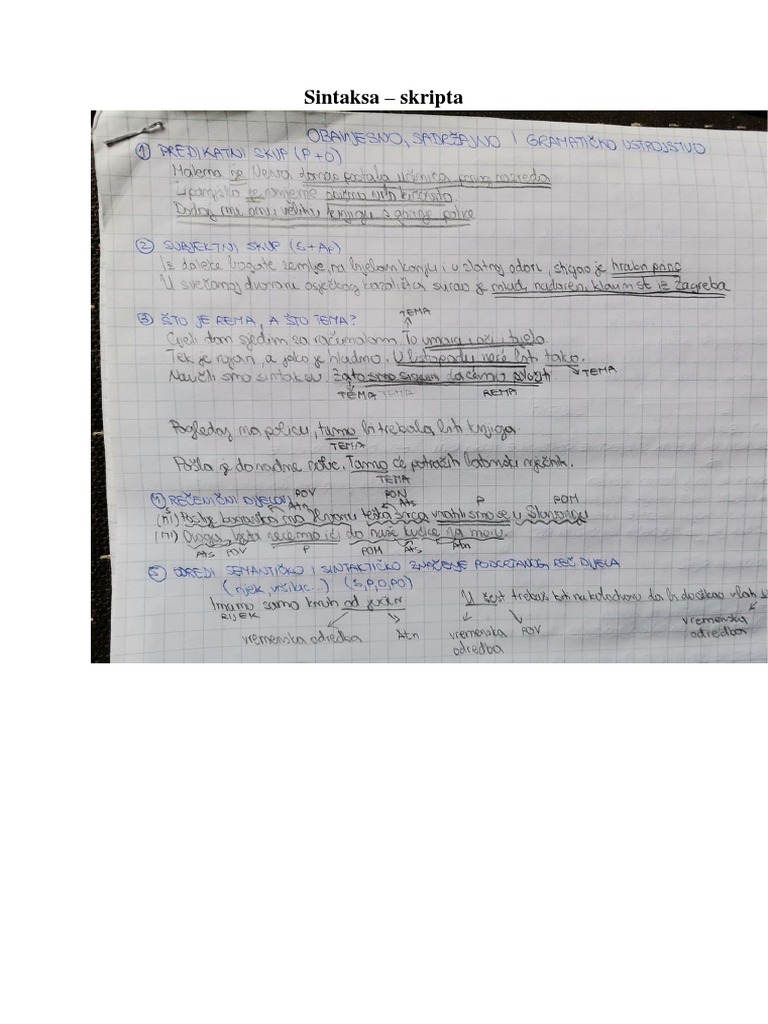 Sintaksa – skripta
OBAVIJESNO, SADRŽAJNO I GRAMATIČKO USTROJSTVO
1 PREDIKATNI SKUP (P+O)
Malena je Neva danas postala učenica prvog razreda
Lipanjsko je vrijeme
Dodaj mi onu veliku knjigu s gornje police
2 SUBJEKTNI SKUP (S+At)
Iz daleke bogate zemlje, na bijelom konju i u zlatnoj odori, stigao je hrabri princ
U svečanoj dvorani osječkog kazališta svirao je mladi, nadareni, klavirist iz Zagreba
TEMA
3 ŠTO JE REMA, A ŠTO TEMA?
Cijeli dan sjedim za računalom. To umara i oči i tijelo.
Tek je rujan, a jako je hladno. U listopadu neće biti tako.
TEMA
Naučili smo sintaksu. Zato smo sigurni da ćemo proći.
TEMA TEMA REMA
Pogledaj na policu, tamo bi trebala biti knjiga.
TEMA
Pošla je do radne sobe. Tamo će potražiti latinski rječnik.
TEMA
4 REČENIČNI DIJELOVI
POV PON P POM
Atn Ats
(m) Poslije boravka na teška srca vratili smo se u Slavoniju
(m) Ovoga ljeta nećemo ići do naše kućice na moru.
Ats POV P POM Ats Atn
5 ODREDI SEMANTIČKO I SINTAKTIČKO ZNAČENJE PODCRTANOG REČ. DIJELA
(rijek, vršilac...) (S,P,O,PO)
Imamo samo kruh od jučer U šest trebaš biti na kolodvoru da bi dočekao vlak u
RIJEK
vremenska odredba Atn vremenska odredba POV vremenska odredba